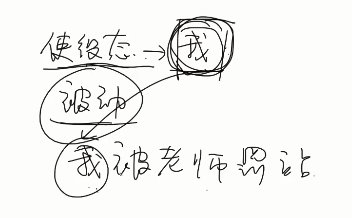 使役态→我
被动
我被老师罚站